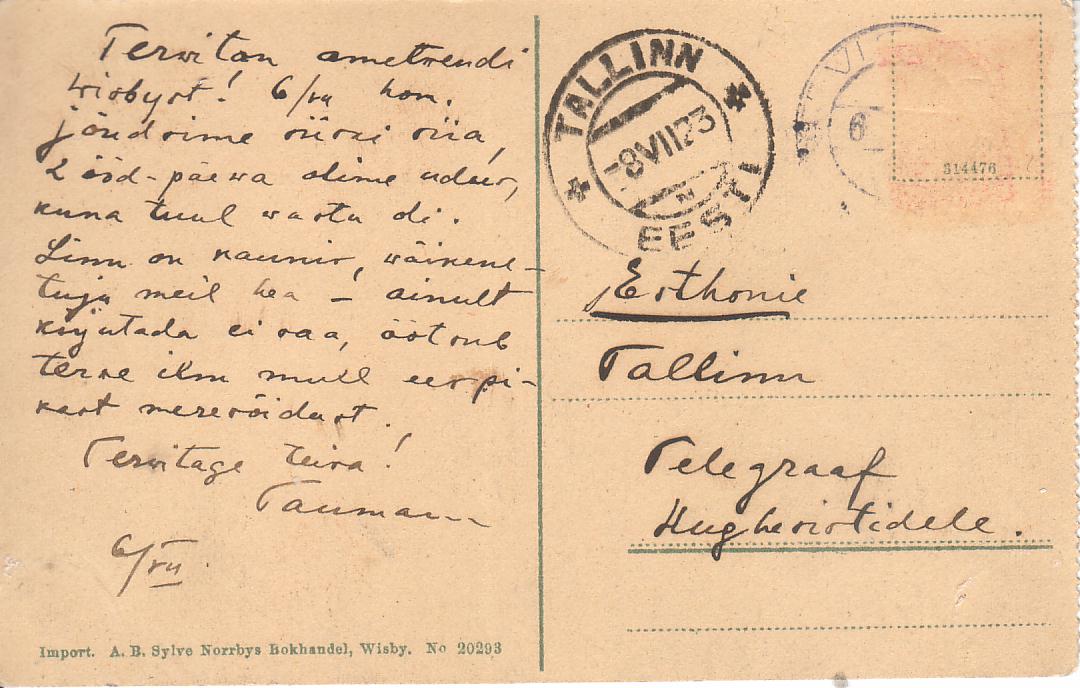 Terwitan ametwendi
Wisbyst! 6/VII hom.
jõudsime siiski siia,
2 ööd-päewa olime udus,
kuna tuul wastu oli.
Linn on kaunis, wäikene –
tuju meil hea – ainult
kirjutada ei saa, õõtsub
terwe ilm mull eespi-
kast meresõidust.
Terwitage teisa!
Taumann
6/VII.
Import. A. B. Sylve Norrbys Bokhandel, Wisby. No 20293
TALLINN
-8VII23
EESTI
VI
6
314476
Esthonie
Tallinn
Telegraaf
Hughesistidele.